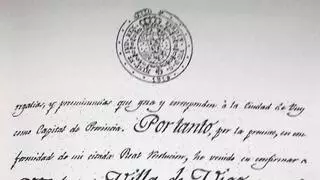 regalias, y preeminencias que goza y corresponden à la Ciudad de Tuy
como Capital de Provincia. Por tanto, por la presente, en con
formidad de mi citada Real resolucion, he venido en confirmar a
Villa de Vigo